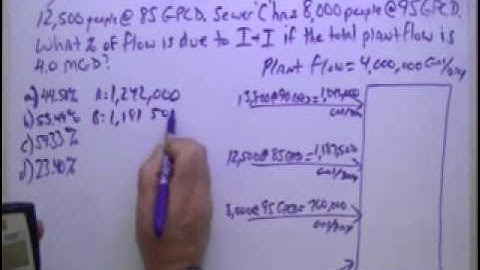 12,500 people @ 85 GPCD. Sewer C has 8,000 people @ 95 GPCD.
What % of flow is due to I+I if the total plant flow is
4.0 MGD?
Plant Flow = 4,000,000 Gal/Day
a) 44.51% A=1,242,000
b) 55.49% B=1,181 50
c) 59.33%
d) 23.40%
13,800@90GPCD=1,242,000
Gal/Day
12,500@85GPCD=1,187,500
Gal/Day
8,000@95GPCD=760,000
Gal/Day